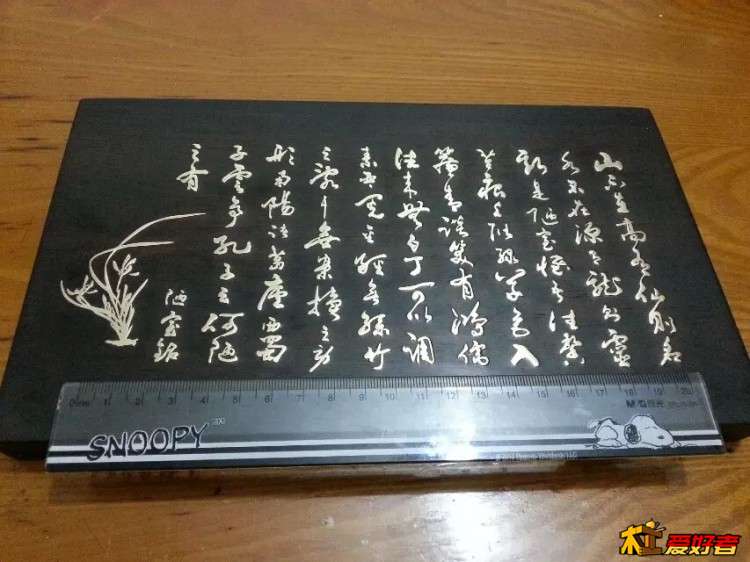 山不在高有仙則名
水不在深有龍則靈
斯是陋室惟吾德馨
苔痕上階綠草色入
簾青談笑有鴻儒
往來無白丁可以調
素琴閱金經無絲竹
之亂耳無案牘之勞
形南陽諸葛廬西蜀
子雲亭孔子云何陋
之有
陋室銘
0cm 1 2 3 4 5 6 7 8 9 10 11 12 13 14 15 16 17 18 19 20
SNOOPY
木工爱好者